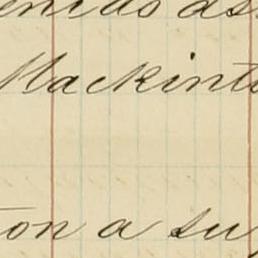 Mackint
on a su